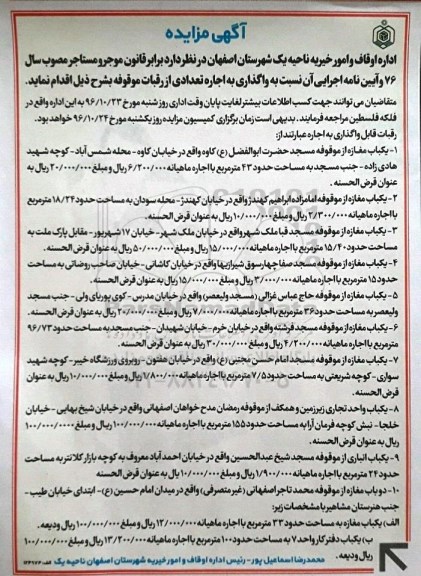 آگهی مزایده
اداره اوقاف و امور خیریه ناحیه یک شهرستان اصفهان در نظر دارد برابر قانون موجر و مستاجر مصوب سال
۷۶ و آیین نامه اجرایی آن نسبت به واگذاری به اجاره تعدادی از رقبات موقوفه بشرح ذیل اقدام نماید.
متقاضیان می توانند جهت کسب اطلاعات بیشتر لغایت پایان وقت اداری روز شنبه مورخ ۹۶/۱۰/۲۳ به این اداره واقع در
فلکه فلسطین مراجعه فرمایند. بدیهی است زمان برگزاری کمیسیون مزایده روز یکشنبه مورخ ۹۶/۱۰/۲۴ خواهد بود.
رقبات قابل واگذاری به اجاره عبارتند از:
۱- یکباب مغازه از موقوفه مسجد حضرت ابوالفضل (ع) کاوه واقع در خیابان کاوه - محله شمس آباد - کوچه شهید
هادی زاده - جنب مسجد به مساحت حدود ۴۳ مترمربع با اجاره ماهیانه ۶/۲۰۰/۰۰۰ ریال و مبلغ ۲۰/۰۰۰/۰۰۰ ریال به
عنوان قرض الحسنه.
۲- یکباب مغازه از موقوفه امامزاده ابراهیم کهندژ واقع در خیابان کهندژ - محله سودان به مساحت حدود ۱۸/۲۴ مترمربع
با اجاره ماهیانه ۲/۳۰۰/۰۰۰ ریال و مبلغ ۱۰/۰۰۰/۰۰۰ ریال به عنوان قرض الحسنه.
۳- یکباب مغازه از موقوفه مسجد قبا ملک شهر واقع در خیابان ملک شهر - خیابان ۱۷ شهریور - مقابل پارک ملت به
مساحت حدود ۱۵/۴۰ مترمربع با اجاره ماهیانه ۱۵/۰۰۰/۰۰۰ ریال و مبلغ ۵۰/۰۰۰/۰۰۰ ریال به عنوان قرض الحسنه.
۴- یکباب مغازه از موقوفه مسجد صفا چهارسوق شیرازیها واقع در خیابان کاشانی - خیابان صاحب روضاتی به مساحت
حدود ۱۵ مترمربع با اجاره ماهیانه ۳/۰۰۰/۰۰۰ ریال و مبلغ ۱۵/۰۰۰/۰۰۰ ریال به عنوان قرض الحسنه.
۵- یکباب مغازه از موقوفه حاج عباس غزالی (مسجد ولیعصر) واقع در خیابان مدرس - کوی پوریای ولی - جنب مسجد
ولیعصر به مساحت حدود ۳۶ مترمربع با اجاره ماهیانه ۷/۰۰۰/۰۰۰ ریال و مبلغ ۲۰/۰۰۰/۰۰۰ ریال به عنوان قرض الحسنه.
۶- یکباب مغازه از موقوفه مسجد فرشته واقع در خیابان خرم - خیابان شهیدان - جنب مسجد به مساحت حدود ۹۶/۷۳
مترمربع با اجاره ماهیانه ۴/۲۰۰/۰۰۰ ریال و مبلغ ۲۰/۰۰۰/۰۰۰ ریال به عنوان قرض الحسنه.
۷- یکباب مغازه از موقوفه مسجد امام حسن مجتبی (ع) واقع در خیابان هفتون - روبروی ورزشگاه خیبر - کوچه شهید
سواری - کوچه شریعتی به مساحت حدود ۷/۵ مترمربع با اجاره ماهیانه ۱/۸۰۰/۰۰۰ ریال و مبلغ ۱۰/۰۰۰/۰۰۰ ریال به عنوان
قرض الحسنه.
۸- یکباب واحد تجاری زیرزمین و همکف از موقوفه رمضان مدح خواهان اصفهانی واقع در خیابان شیخ بهایی - خیابان
خلجا - نبش کوچه فرمان آرا به مساحت حدود ۱۵۵ مترمربع با اجاره ماهیانه ۱۰۰/۰۰۰/۰۰۰ ریال و مبلغ ۱۰۰/۰۰۰/۰۰۰
ریال به عنوان قرض الحسنه.
۹- یکباب انباری از موقوفه مسجد شیخ عبدالحسین واقع در خیابان احمد آباد معروف به کوچه بازار کلانتر به مساحت
حدود ۲۴ مترمربع با اجاره ماهیانه ۱/۹۰۰/۰۰۰ ریال و مبلغ ۱۰/۰۰۰/۰۰۰ ریال به عنوان قرض الحسنه
۱۰- دو باب مغازه از موقوفه محمد تاجر اصفهانی (غیر متصرفی) واقع در میدان امام حسین (ع) - ابتدای خیابان طیب -
جنب هنرستان مشاهیر با مشخصات زیر:
الف) یکباب مغازه به مساحت حدود ۳۳ مترمربع با اجاره ماهیانه ۱۲/۰۰۰/۰۰۰ ریال و مبلغ ۱۰۰/۰۰۰/۰۰۰ ریال ودیعه.
ب) یکباب دفتر کار واحد ۷ به مساحت حدود ۱۰۰ مترمربع با اجاره ماهیانه ۱۳/۲۰۰/۰۰۰ ریال و مبلغ ۱۰۰/۰۰۰/۰۰۰
ریال ودیعه.
محمدرضا اسماعیل پور - رئیس اداره اوقاف و امور خیریه شهرستان اصفهان ناحیه یک